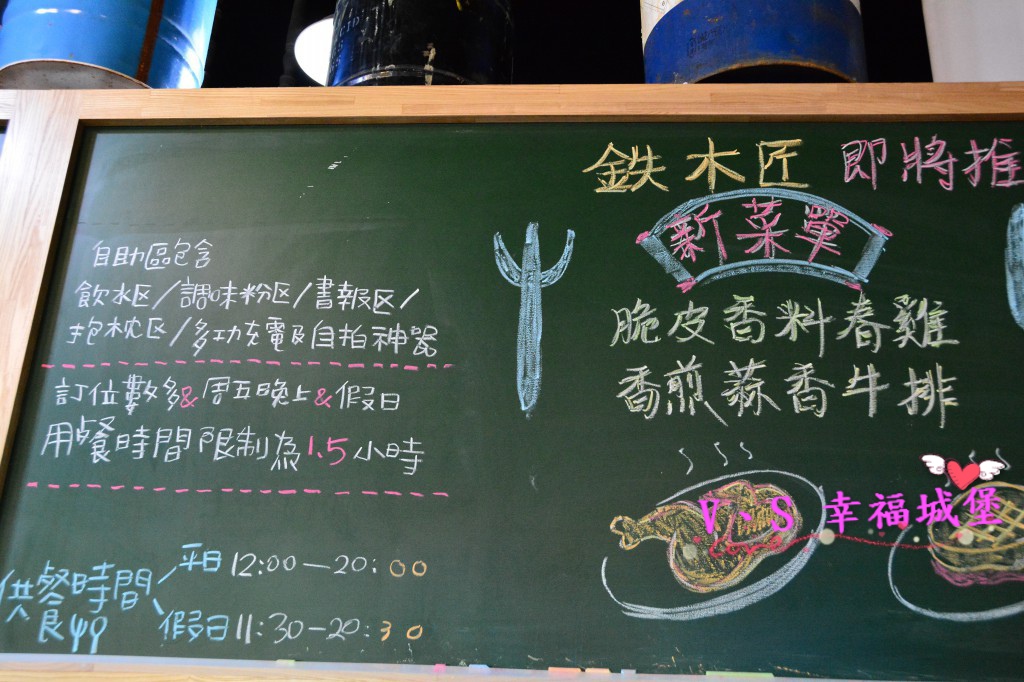 自助區包含
飲水区/調味粉区/書報区/
抱枕区/多功充電及自拍神器
訂位數多&周五晚上&假日
用餐時間限制為1.5小時
供餐時間
平日12:00-20:00
假日11:30-20:30
鉄木匠 即將推
新菜單
脆皮香料春雞
香煎蒜香牛排
V、S 幸福城堡